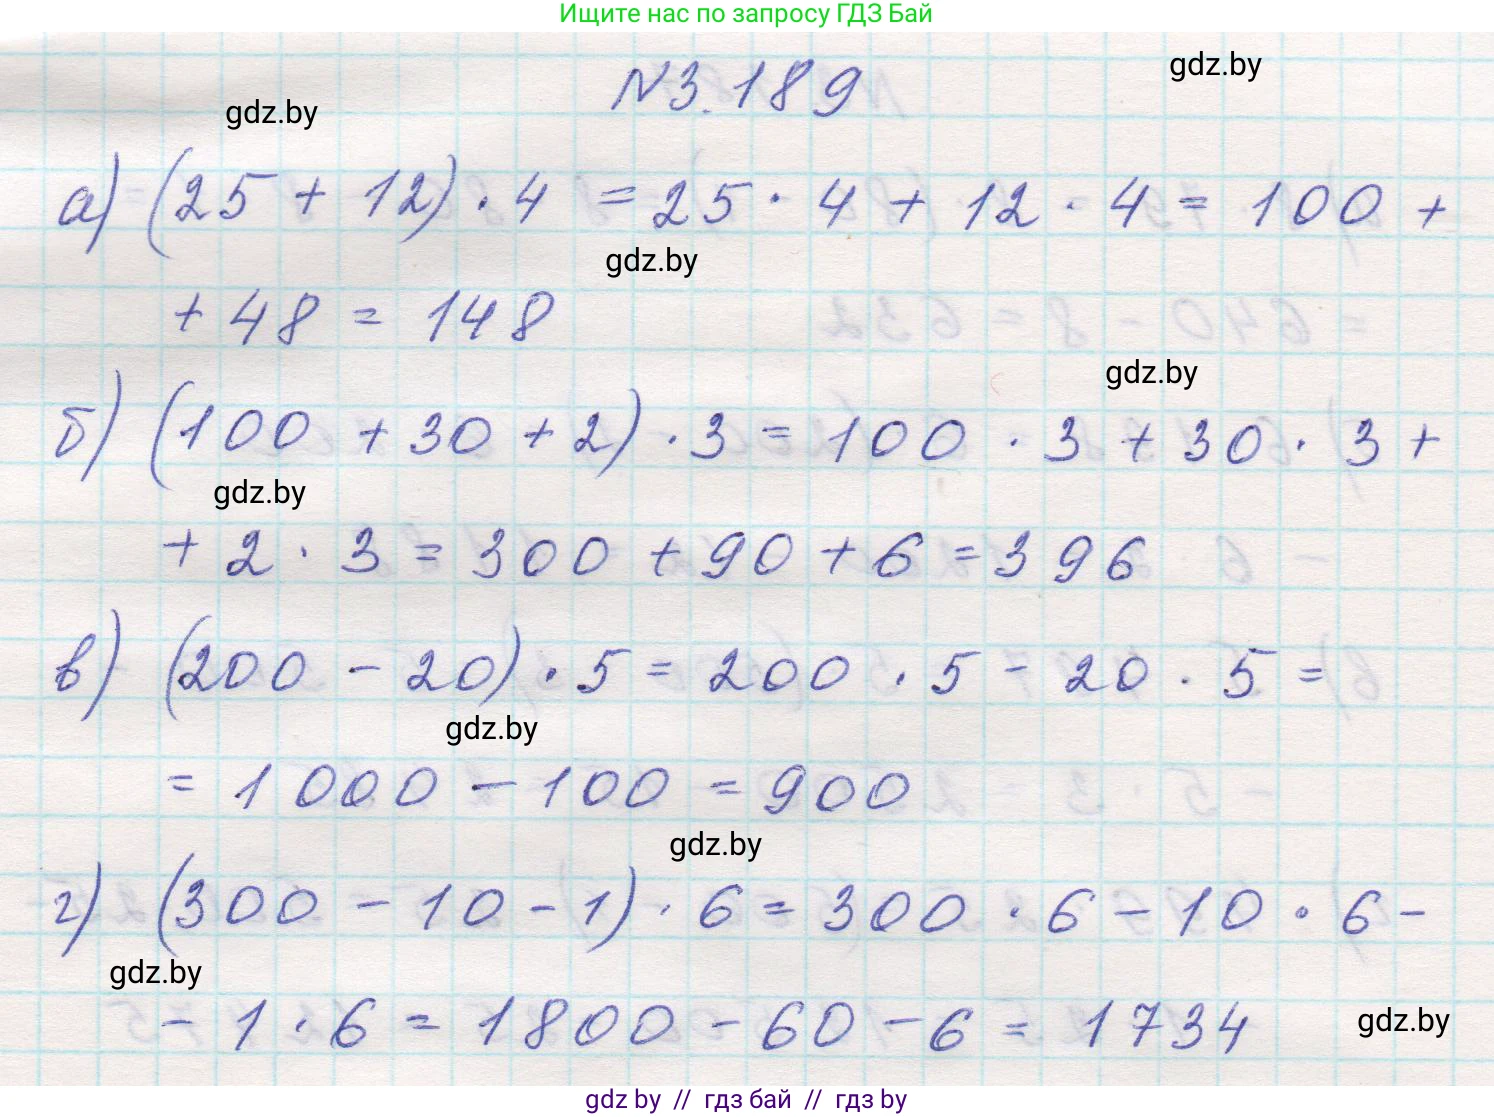 Ищите нас по запросу ГДЗ Бай
N3.189
gdz.by
gdz.by
а) (25 + 12) · 4 = 25 · 4 + 12 · 4 = 100 +
gdz.by
+ 48 = 148
gdz.by
б) (100 + 30 + 2) · 3 = 100 · 3 + 30 · 3 +
gdz.by
+ 2 · 3 = 300 + 90 + 6 = 396
в) (200 - 20) · 5 = 200 · 5 - 20 · 5 =
gdz.by
= 1000 - 100 = 900
gdz.by
г) (300 - 10 - 1) · 6 = 300 · 6 - 10 · 6 -
gdz.by
- 1 · 6 = 1800 - 60 - 6 = 1734
gdz.by
gdz.by // гдз бай // гдз by